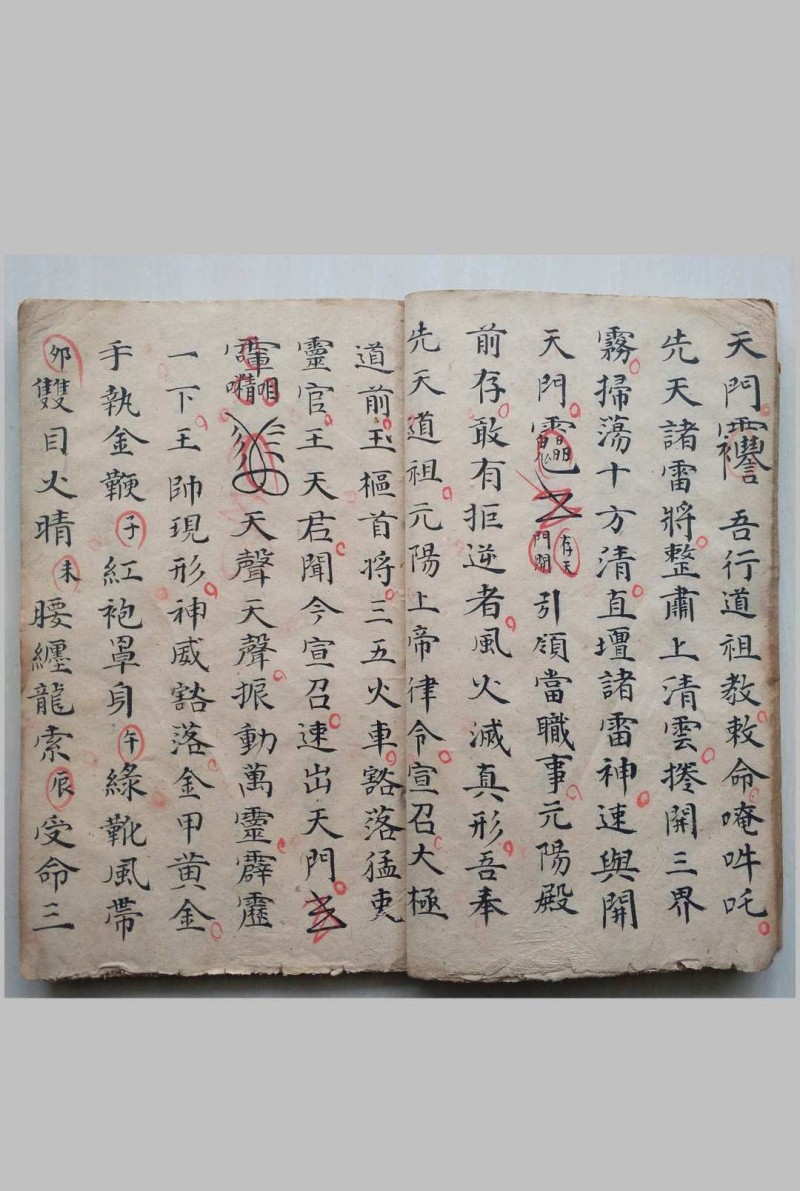 天門 吾行道祖教敕命唵吽吒
先天諸雷將整肅上清雲捲開三界
霧掃蕩十方清直壇諸雷神速與開
天門 存天門開 引領當職事元陽殿
前存敢有拒逆者風火滅真形吾奉
先天道祖元陽上帝律令宣召大極
道前玉樞首將三五火車豁落猛吏
靈官王天君聞今宣召速出天門
天聲天聲振動萬靈霹靂
一下王帥現形神威豁落金甲黃金
手執金鞭子紅袍罩身午綠靴風帶
卯雙目火晴未腰纏龍索辰受命三